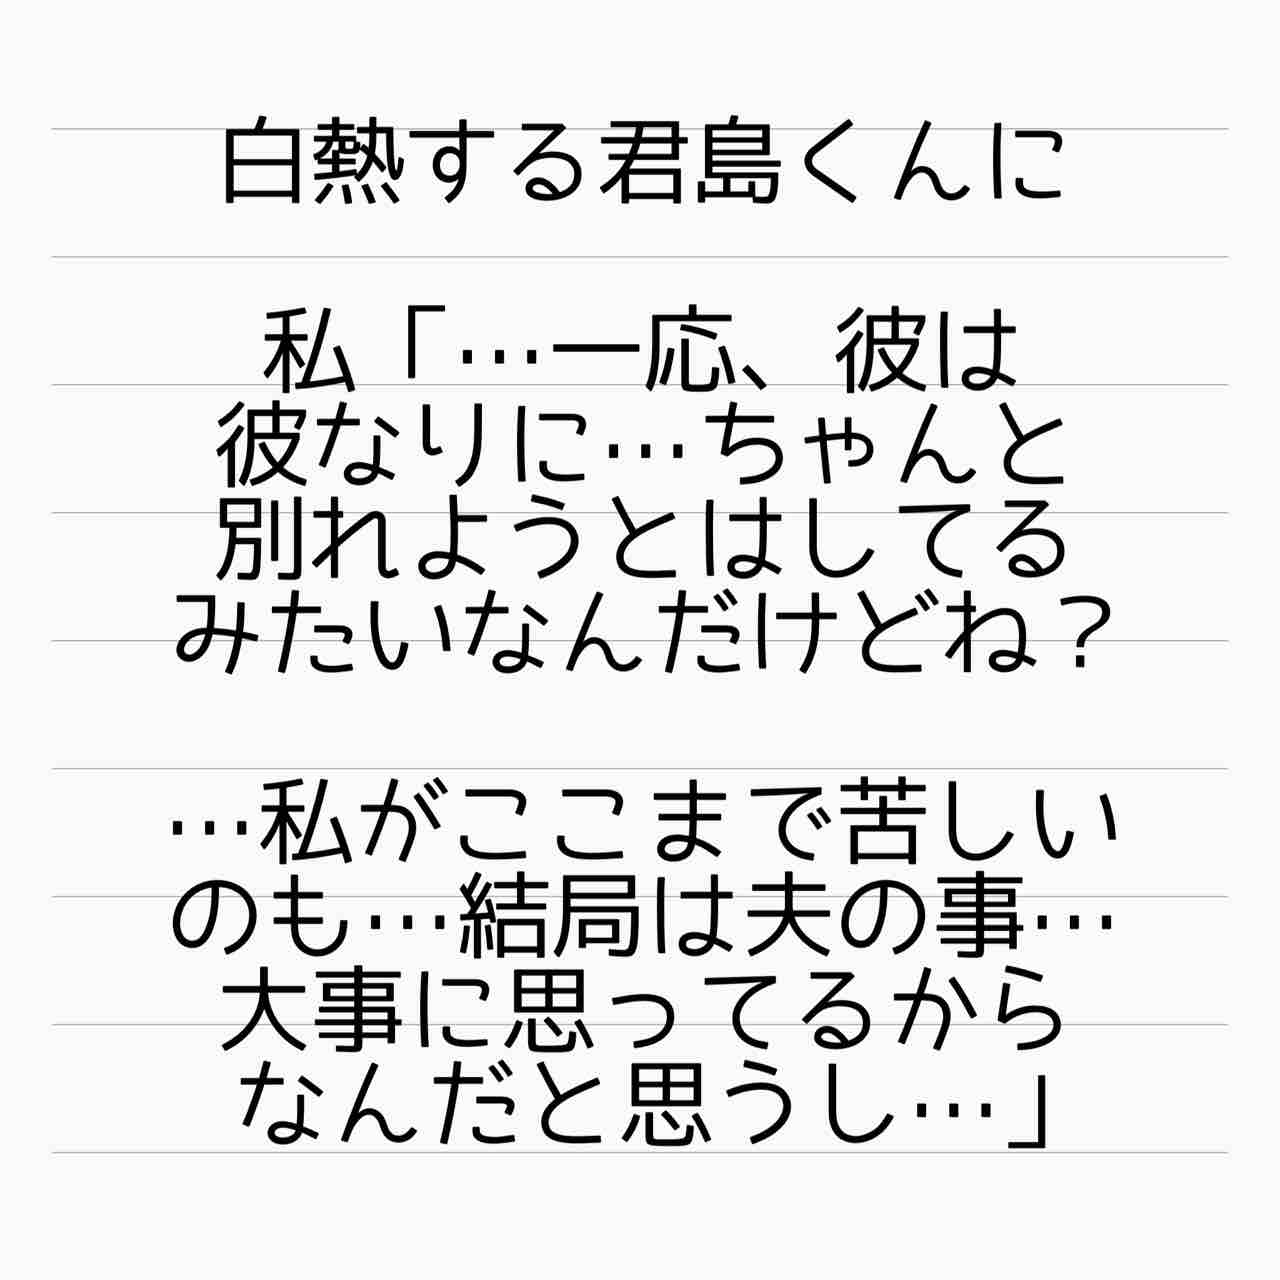 白熱する君島くんに
私「…一応、彼は
彼なりに…ちゃんと
別れようとはしてる
みたいなんだけどね？
…私がここまで苦しい
のも…結局は夫の事…
大事に思ってるから
なんだと思うし…」